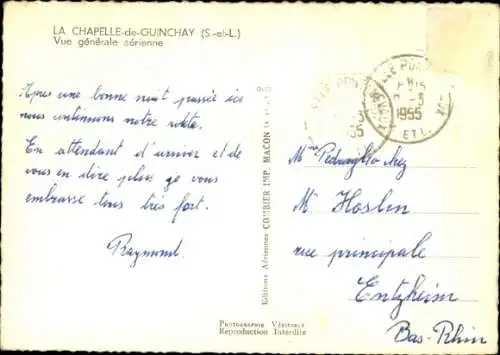 LA CHAPELLE-de-GUINCHAY (S.-et-L.)
Vue générale aérienne
Après une bonne nuit passée ici
nous continuons notre route.
En attendant d'arriver et de
vous en dire plus je vous
embrasse tous très fort.
Raymond.
Editions Aériennes COMBIER IMP. MACON
1955
ET L.
Mme chez
Mr Hoslen
rue principale
Entzheim
Bas-Rhin
PHOTOGRAPHIE VÉRITABLE
Reproduction Interdite